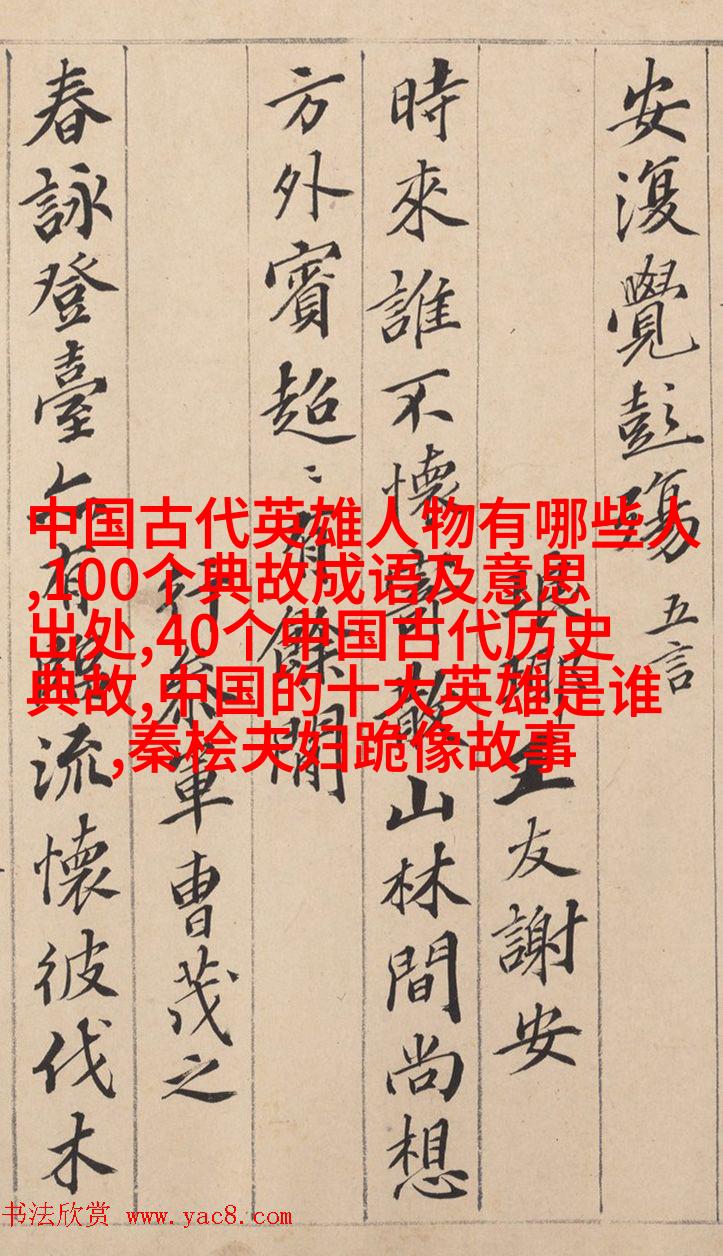 安復覺彭殤 五言
琅耶王友謝安
時來誰不懷寄散山林間尚想
方外賓超〻有餘閒
行參軍曹茂之
春詠登臺亦有臨流懷彼伐木
中国古代英雄人物有哪些人
,100个典故成语及意思
出处,40个中国古代历史
典故,中国的十大英雄是谁
,秦桧夫妇跪像故事
书法欣赏 www.yac8.com